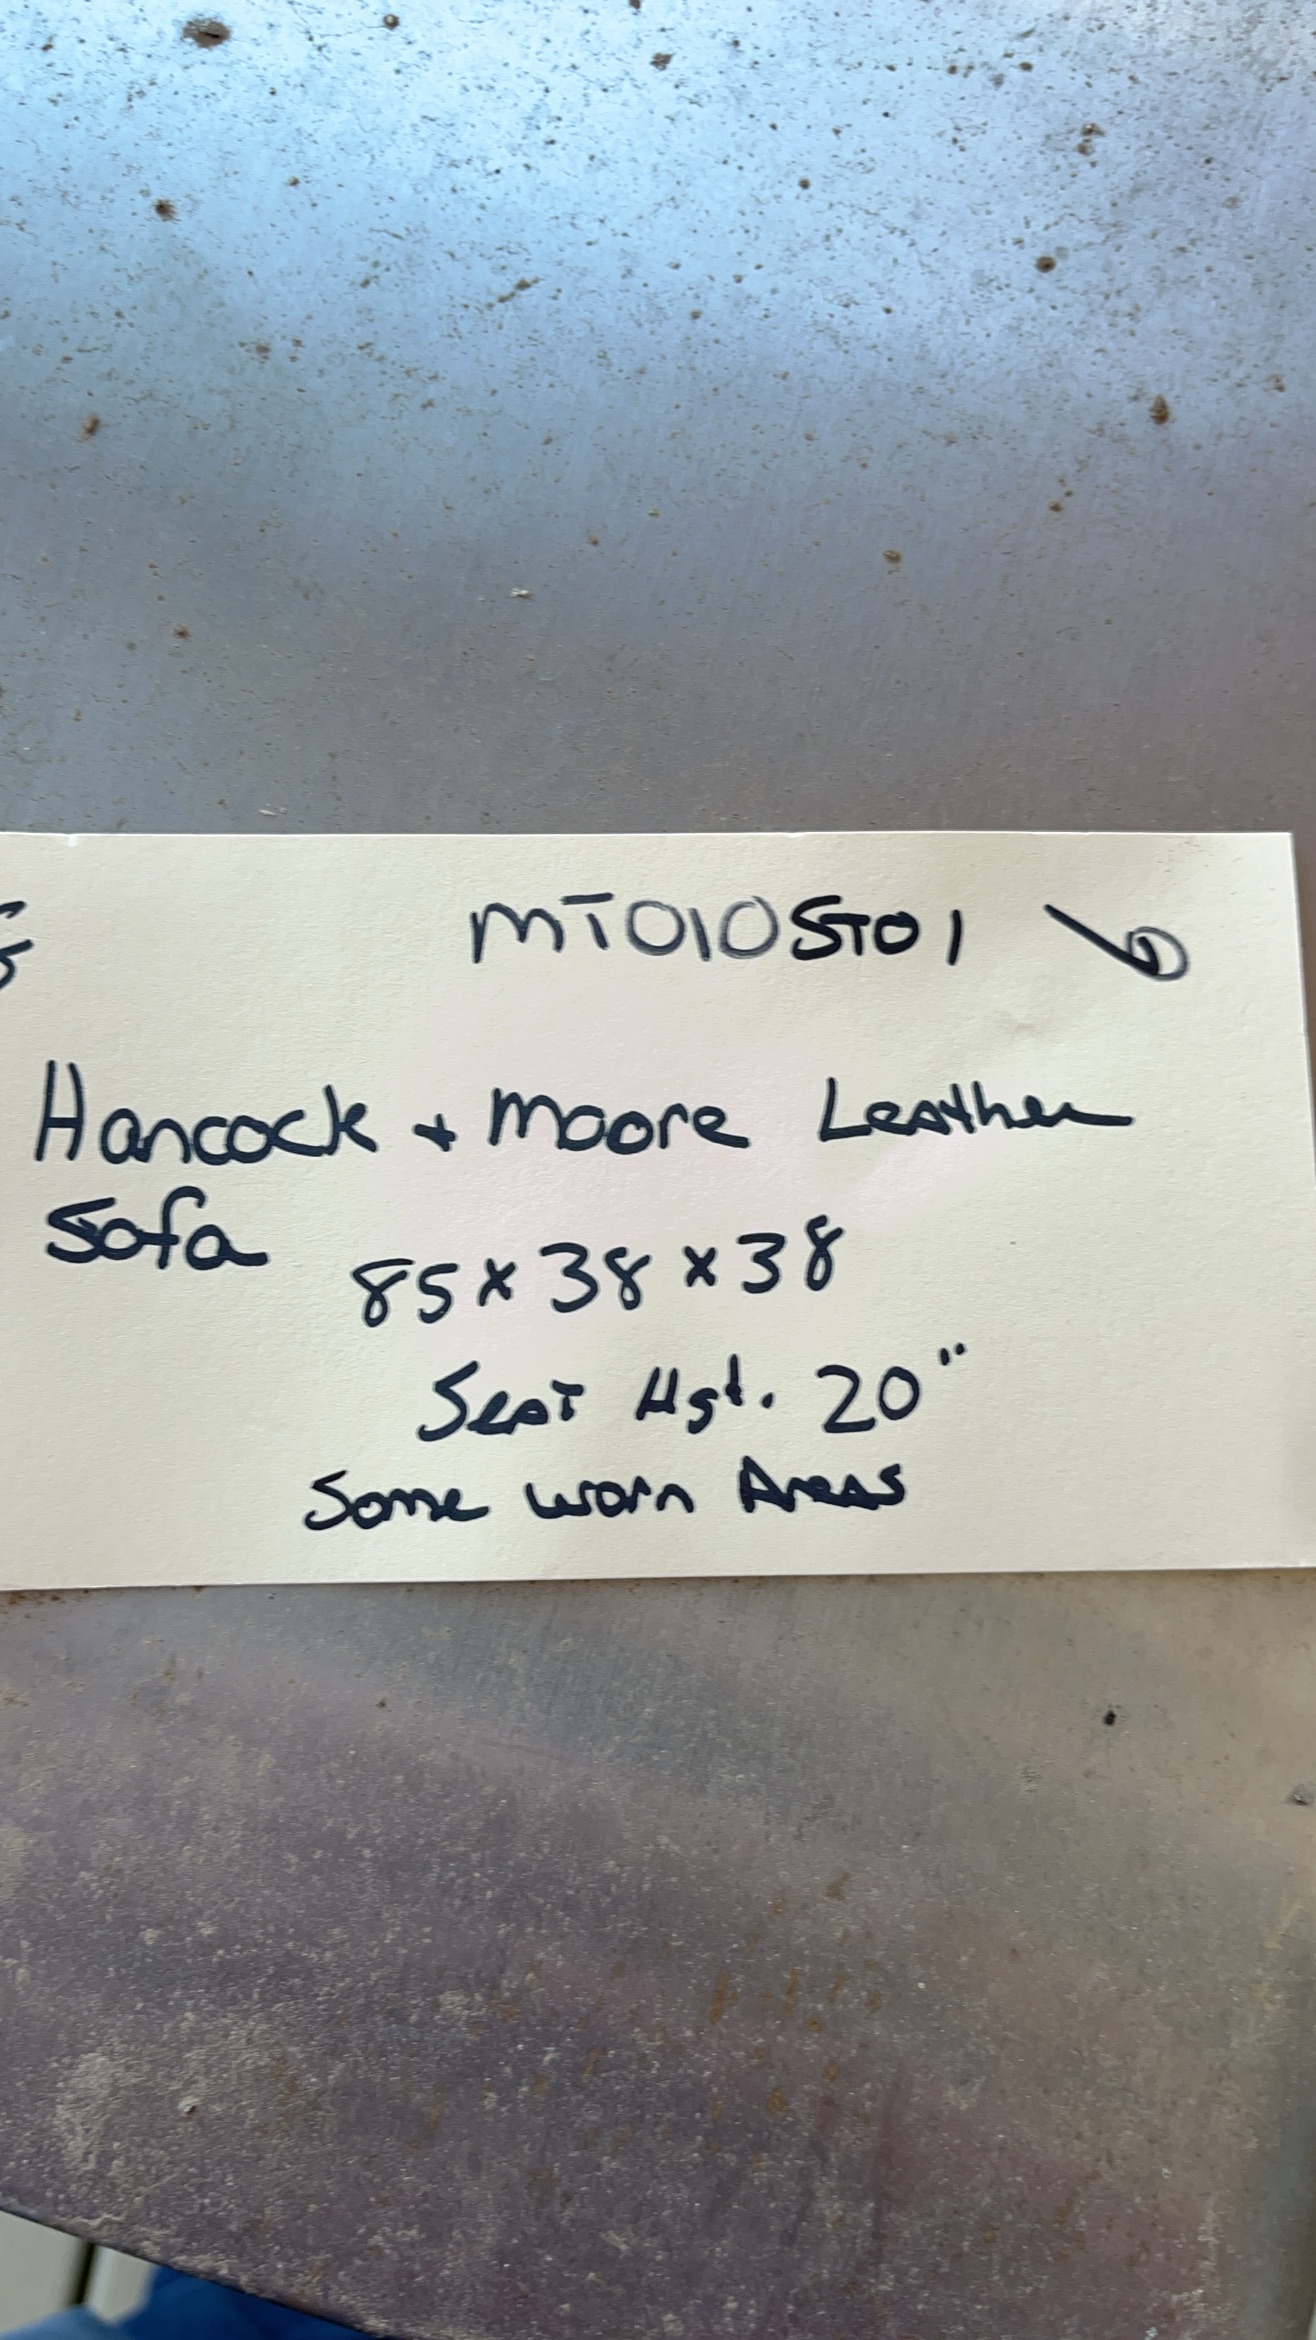 MT010ST01
Hancock + Moore Leather
Sofa
85 x 38 x 38
Seat Hgt. 20"
Some worn Areas